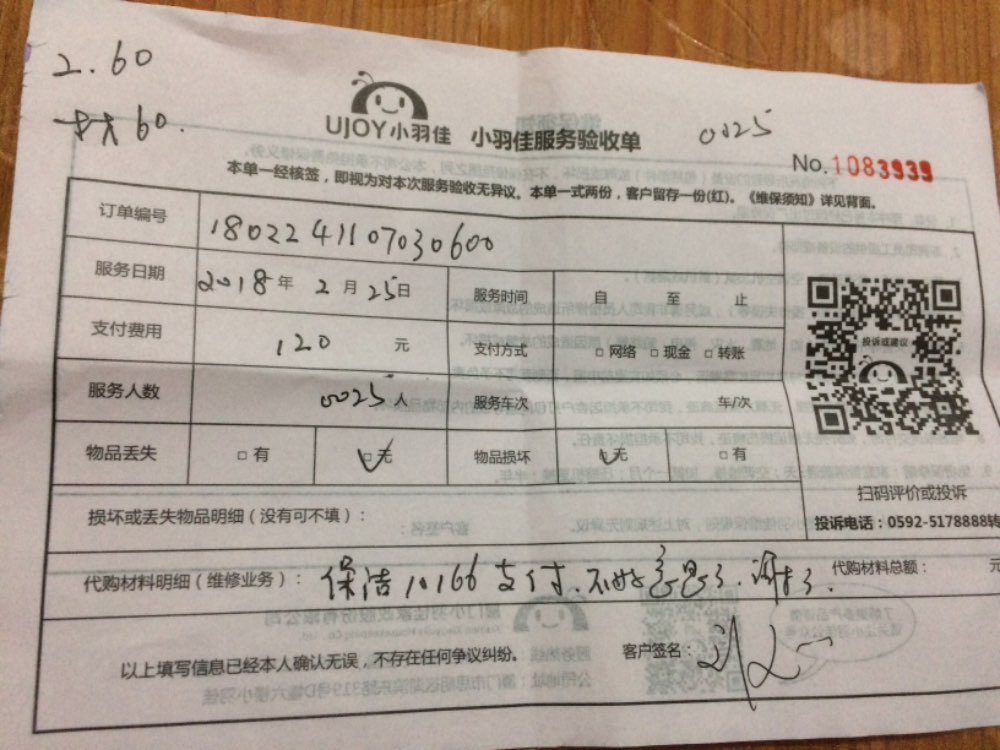 2.60
卡扣60.
UJOY小羽佳 小羽佳服务验收单 0025
No.1083939
本单一经核签，即视为对本次服务验收无异议。本单一式两份，客户留存一份(红)。《维保须知》详见背面。
订单编号 180224110703060​0
服务日期 2018年 2月 25日 服务时间 自 至 止
支付费用 120 元 支付方式 □网络 □现金 □转账
服务人数 0025人 服务车次 车/次
物品丢失 □有 □无 物品损坏 □无 □有
投诉或建议
扫码评价或投诉
投诉电话：0592-5178888转
损坏或丢失物品明细（没有可不填）：
代购材料明细（维修业务）： 保洁10166支付.不好意思了.谢谢了. 代购材料总额： 元
以上填写信息已经本人确认无误，不存在任何争议纠纷。 客户签名：